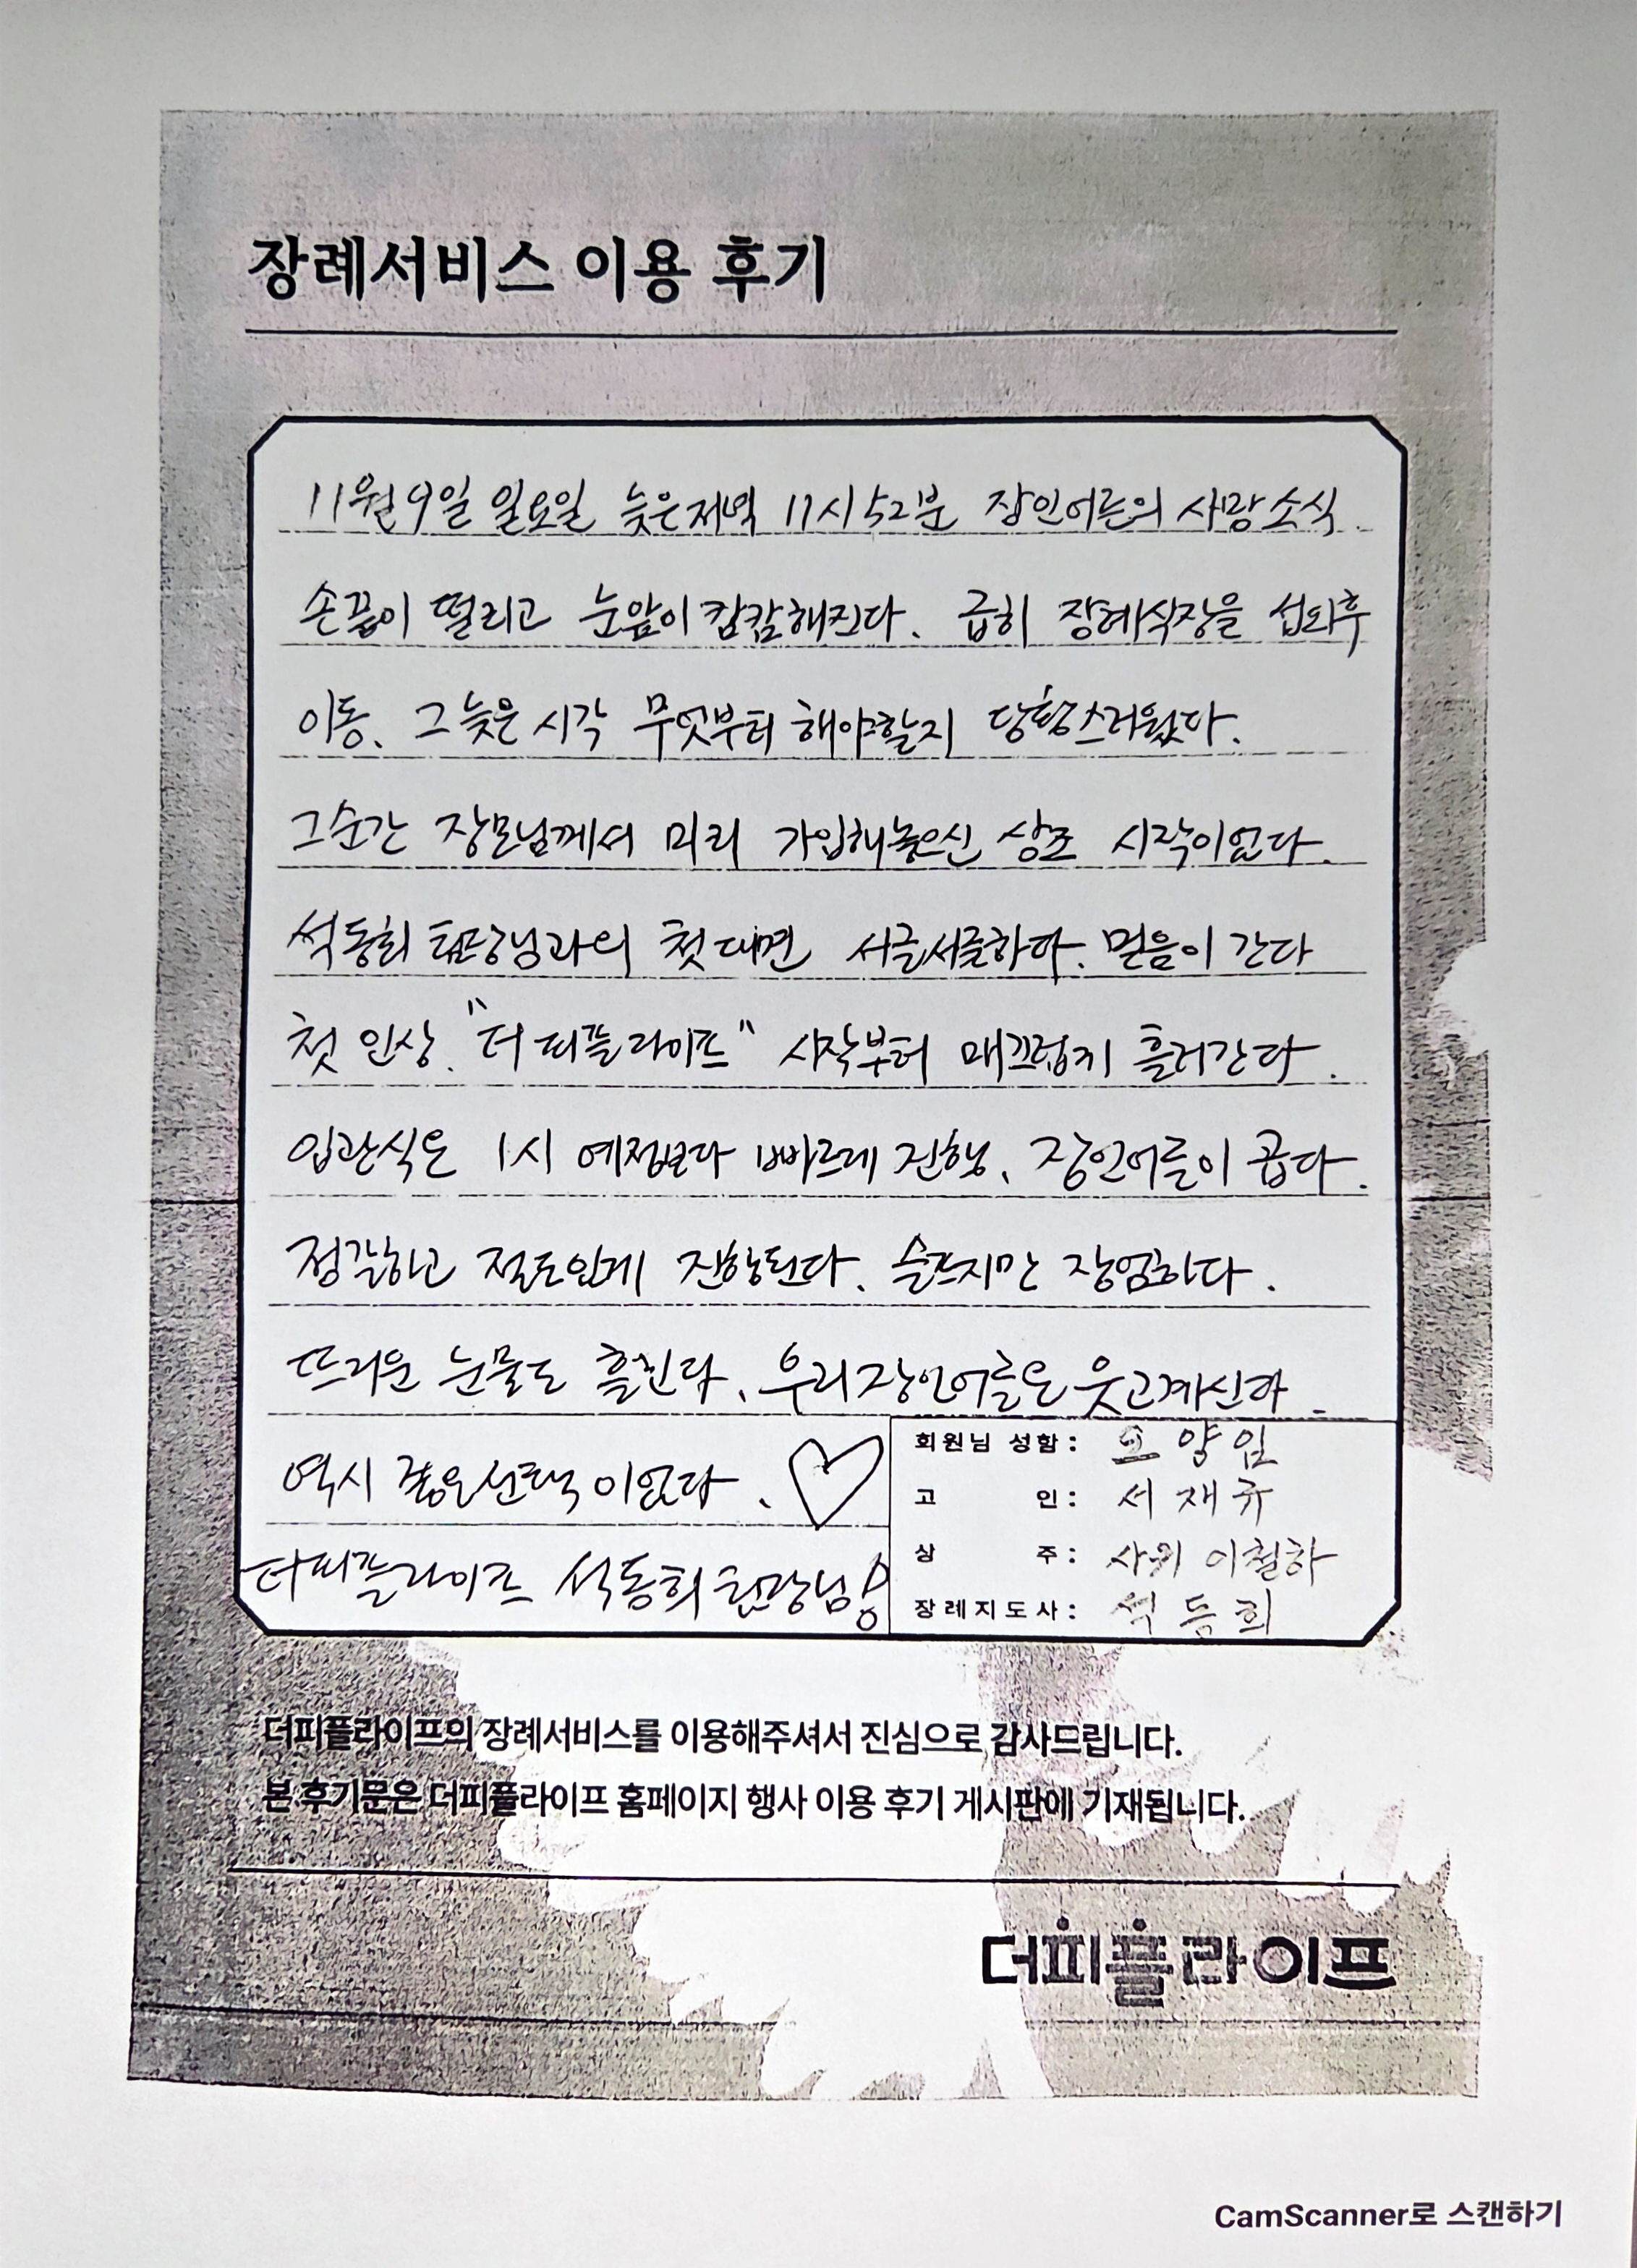 장례서비스 이용 후기
11월 9일 일요일 늦은저녁 11시 52분 장인어른의 사망소식.
손끝이 떨리고 눈앞이 캄캄해진다. 급히 장례식장을 섭외후
이동. 그 늦은 시각 무엇부터 해야할지 당황스러웠다.
그순간 장모님께서 미리 가입해놓으신 상조 시작이었다.
석동희 팀장님과의 첫 대면 서글서글하다. 믿음이 간다
첫 인상. "더 피플라이프" 시작부터 매끄럽게 흘러간다.
입관식은 1시 예정보다 빠르게 진행. 장인어른이 곱다.
정갈하고 절도있게 진행된다. 슬프지만 장엄하다.
뜨거운 눈물도 흘린다. 우리 장인어른은 웃고계신다.
역시 좋은선택 이었다. ♡
더피플라이프 석동희 팀장님!
회원님 성함: 오양임
고 인: 서재규
상 주: 사위 이철하
장례지도사: 석동희
더피플라이프의 장례서비스를 이용해주셔서 진심으로 감사드립니다.
본 후기문은 더피플라이프 홈페이지 행사 이용 후기 게시판에 기재됩니다.
더피플라이프
CamScanner로 스캔하기